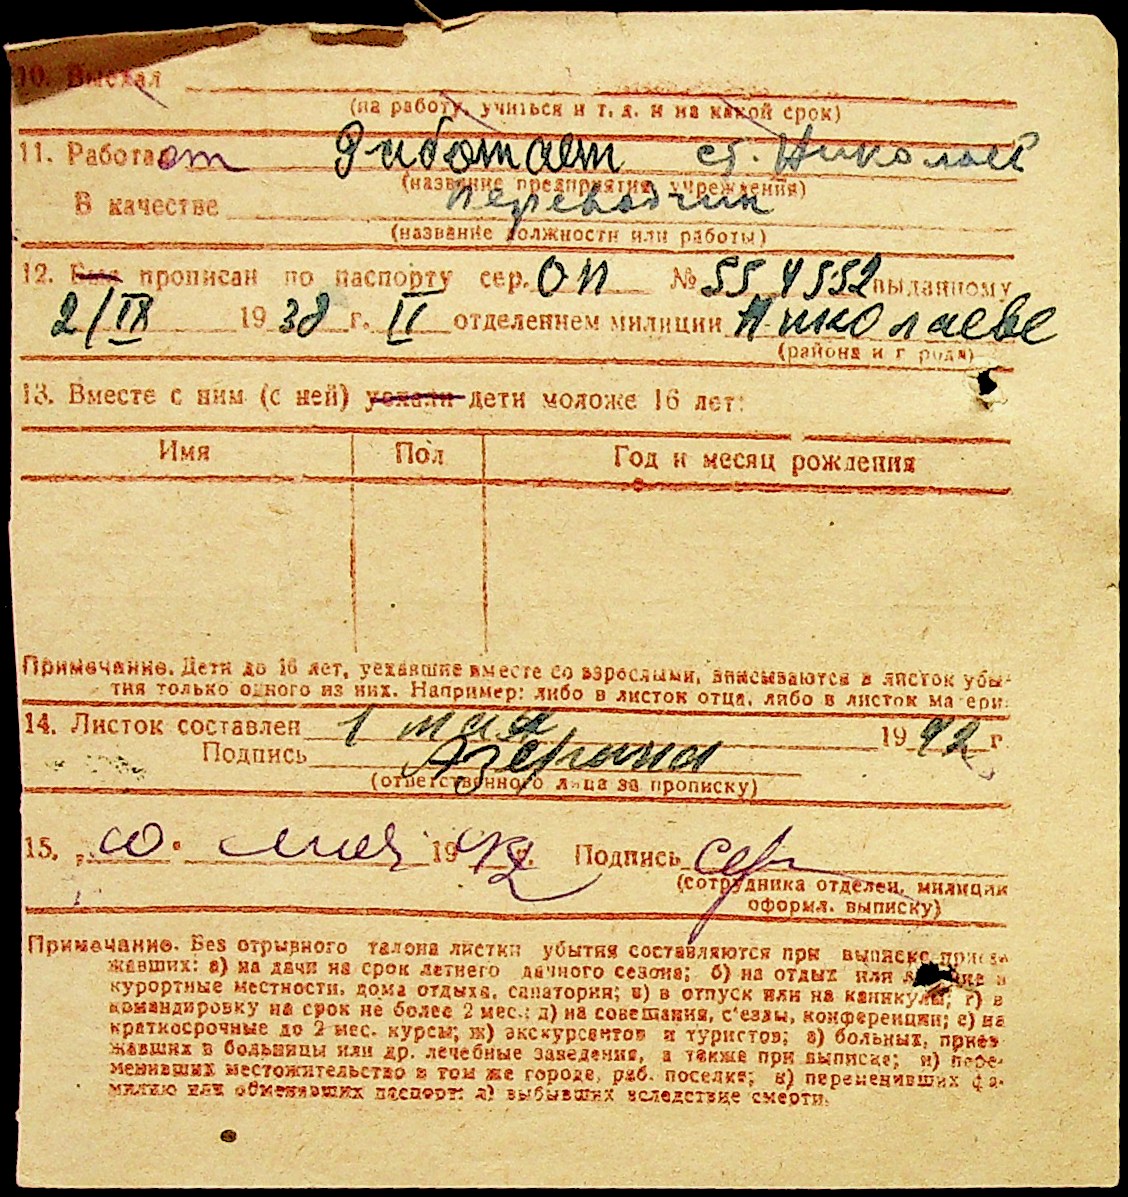 10. Выехал
(на работу, учиться и т. д. и на какой срок)
11. Работает работает ст. Николаев
(название предприятия, учреждения)
В качестве переводчик
(название должности или работы)
12. Был прописан по паспорту сер. ОП № 554552 выданному
2/IX 1938 г. II отделением милиции Николаеве
(района и города)
13. Вместе с ним (с ней) уехали дети моложе 16 лет:
Имя Пол Год и месяц рождения
Примечание. Дети до 16 лет, уехавшие вместе со взрослыми, вписываются в листок убы-
тия только одного из них. Например: либо в листок отца, либо в листок матери.
14. Листок составлен 1 мая 1942 г.
Подпись
(ответственного лица за прописку)
15. „10“ мая 1942 г. Подпись
(сотрудника отделен. милиции
оформл. выписку)
Примечание. Без отрывного талона листки убытия составляются при выписке приез-
жавших: а) на дачи на срок летнего дачного сезона; б) на отдых или в
курортные местности, дома отдыха, санатория; в) в отпуск или на каникулы; г) в
командировку на срок не более 2 мес.; д) на совещания, с'езды, конференции; е) на
краткосрочные до 2 мес. курсы; ж) экскурсантов и туристов; з) больных, приез-
жавших в больницы или др. лечебные заведения, а также при выписке; и) пере-
менивших местожительство в том же городе, раб. поселке; к) переменивших фа-
милию или обменявших паспорт; л) выбывших вследствие смерти.